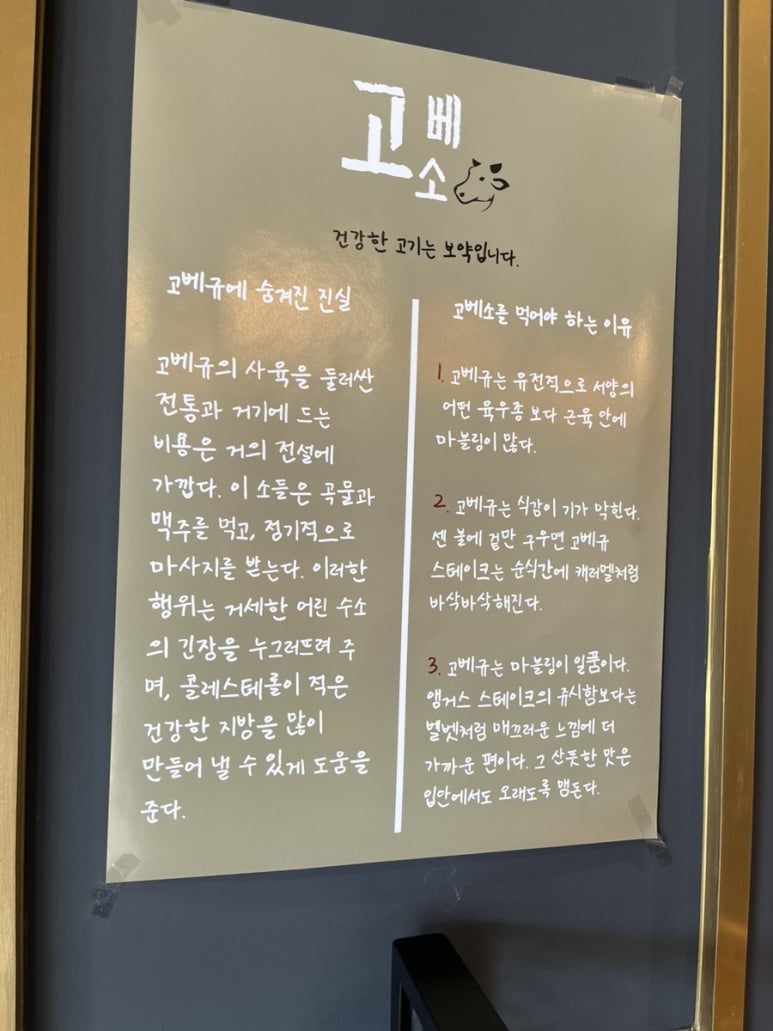 고베소
건강한 고기는 보약입니다.
고베규에 숨겨진 진실
고베규의 사육을 둘러싼
전통과 거기에 드는
비용은 거의 전설에
가깝다. 이 소들은 곡물과
맥주를 먹고, 정기적으로
마사지를 받는다. 이러한
행위는 거세한 어린 수소
의 긴장을 누그러뜨려 주
며, 콜레스테롤이 적은
건강한 지방을 많이
만들어 낼 수 있게 도움을
준다.
고베소를 먹어야 하는 이유
1. 고베규는 유전적으로 서양의
어떤 육우종 보다 근육 안에
마블링이 많다.
2. 고베규는 식감이 기가 막힌다.
센 불에 겉만 구우면 고베규
스테이크는 순식간에 캐러멜처럼
바삭바삭해진다.
3. 고베규는 마블링이 일품이다.
앵거스 스테이크의 쥬시함보다는
벨벳처럼 매끄러운 느낌에 더
가까운 편이다. 그 산뜻한 맛은
입안에서도 오래도록 맴돈다.